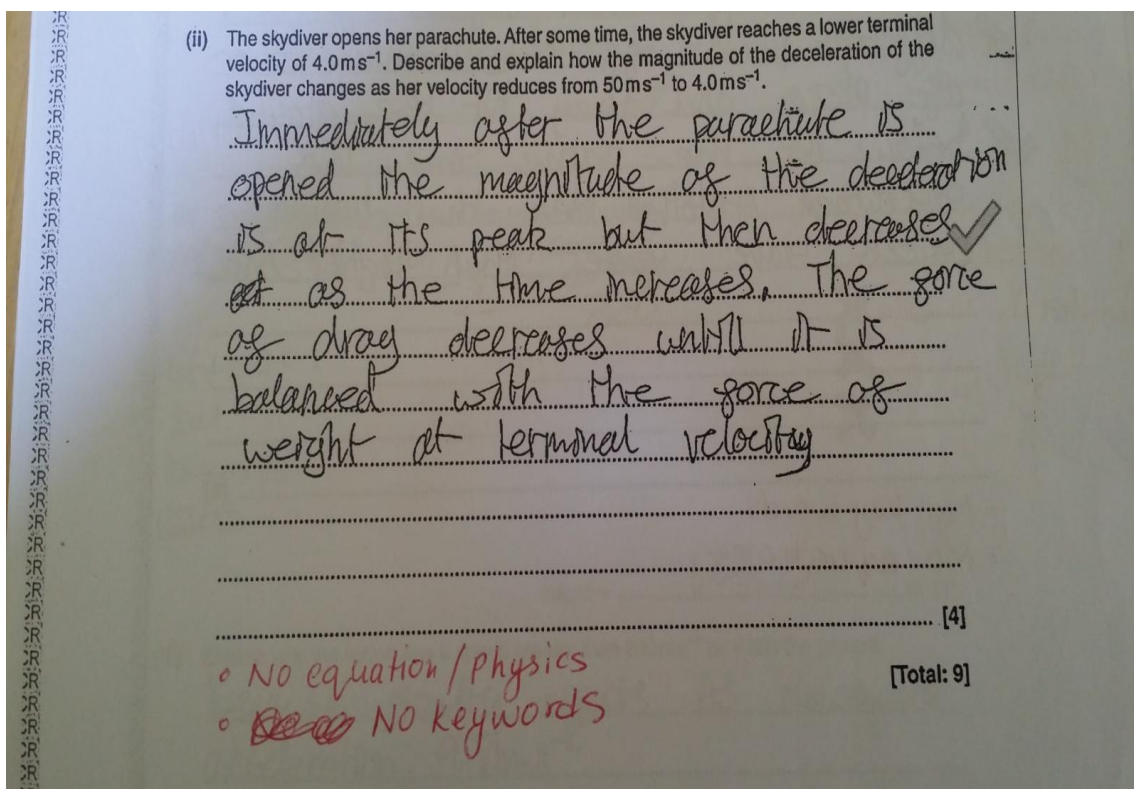 (ii) The skydiver opens her parachute. After some time, the skydiver reaches a lower terminal
velocity of 4.0 m s⁻¹. Describe and explain how the magnitude of the deceleration of the
skydiver changes as her velocity reduces from 50 m s⁻¹ to 4.0 m s⁻¹.
Immediately after the parachute is
opened the magnitude of the deceleration
is at its peak but then decreases ✓
as the time increases. The force
of drag decreases untill it is
balanced with the force of
weight at terminal velocity
[4]
• No equation / Physics
[Total: 9]
• No keywords